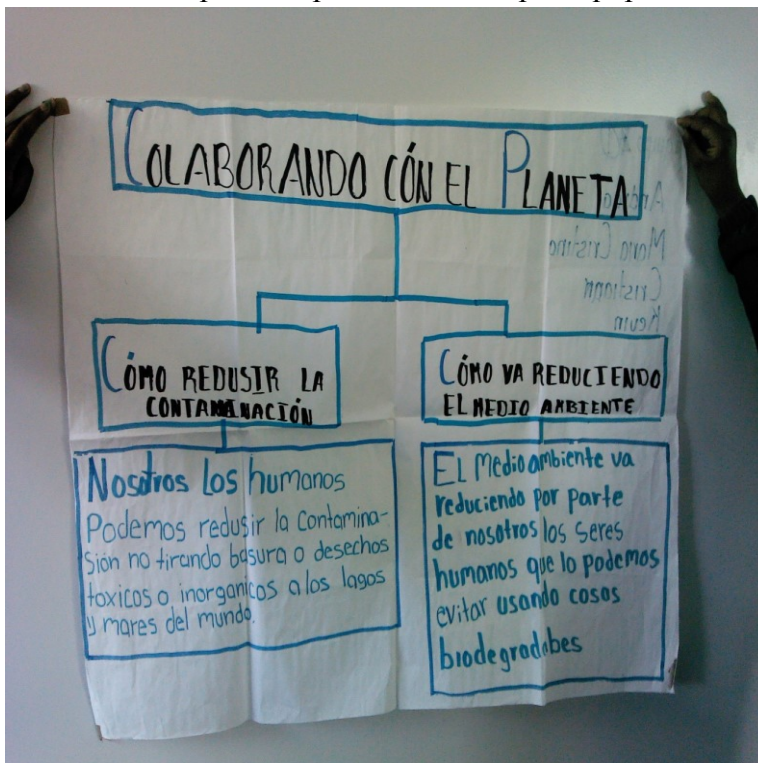 COLABORANDO CÓN EL PLANETA
Maria Cristina
Cristiann
Kevin
CÓMO REDUSIR LA
CONTAMINACIÓN
CÓMO VA REDUCIENDO
EL MEDIO AMBIENTE
Nosotros Los humanos
Podemos redusir la Contamina-
sión no tirando basura o desechos
toxicos o inorganicos a los lagos
y mares del mundo.
EL Medio ambiente va
reduciendo por parte
de nosotros los seres
humanos que lo podemos
evitar usando cosas
biodegradabes